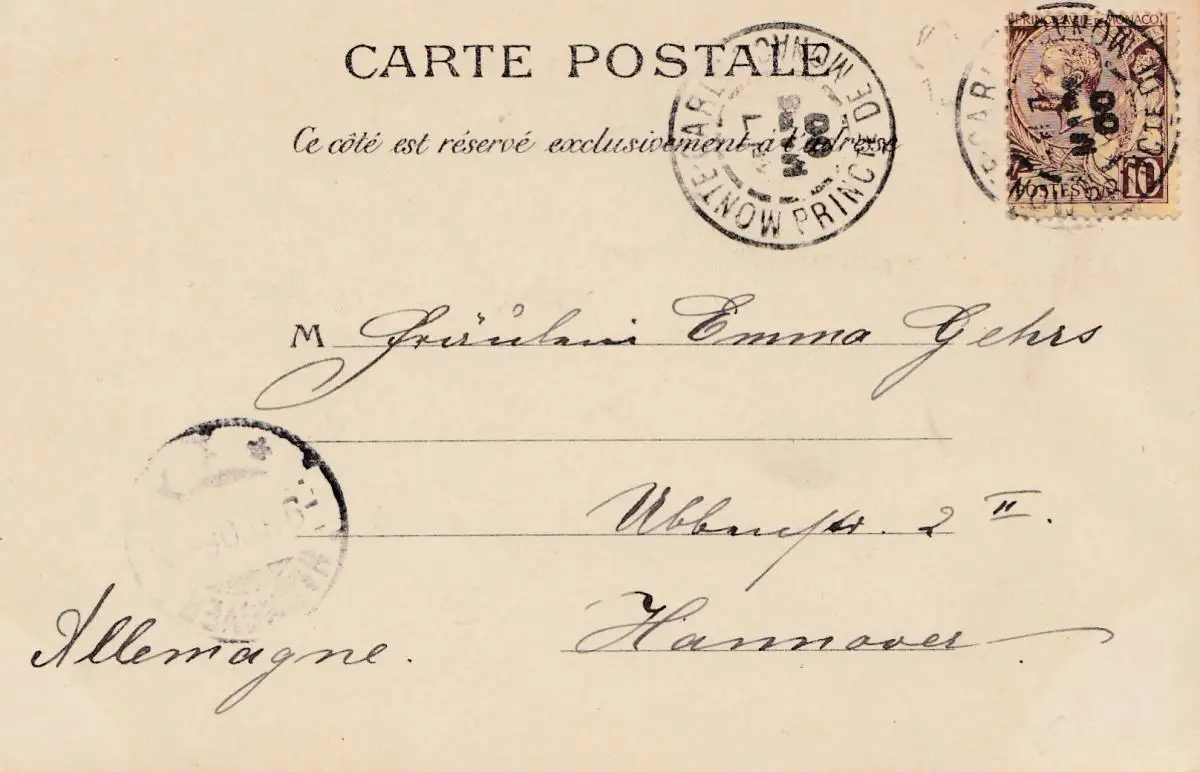 CARTE POSTALE
Ce côté est réservé exclusivement à l'adresse
MONTE-CARLO PRINCTE DE MONACO
PRINCIPAUTÉ DE MONACO
POSTES 10
M Fräulein Emma Gehrs
Ubbenstr. 2 II.
Hannover
Allemagne.